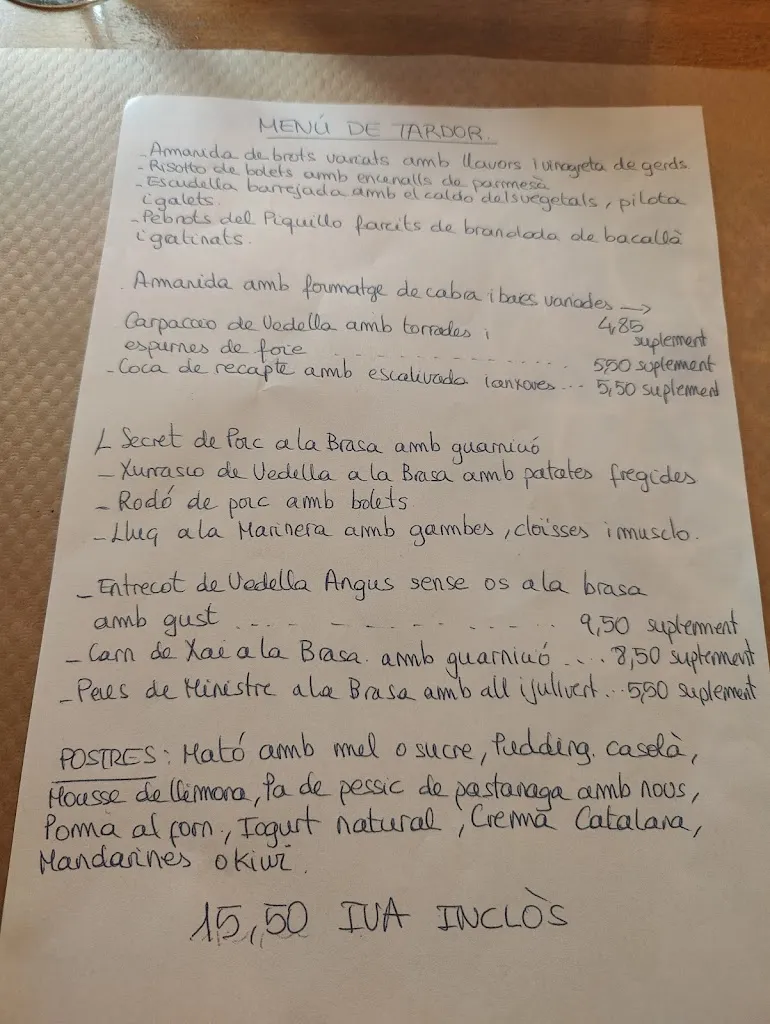 MENÚ DE TARDOR.
- Amanida de brots variats amb llavors i vinagreta de gerds.
- Risotto de bolets amb encenalls de parmesà
- Escudella barrejada amb el caldo dels vegetals, pilota
i galets.
- Pebrots del Piquillo farcits de brandada de bacallà
i gratinats.
. Amanida amb formatge de cabra i baies variades →
4,85
suplement
Carpaccio de Vedella amb torrades i
espurnes de foie ............ 5,50 suplement
- Coca de recapte amb escalivada i anxoves ... 5,50 suplement
- Secret de Porc a la Brasa amb guarnició
- Xurrasco de Vedella a la Brasa amb patates fregides
- Rodó de porc amb bolets
- Lluç a la Marinera amb gambes, cloïsses i musclo.
- Entrecot de Vedella Angus sense os a la brasa
amb gust .... - - - - ..... 9,50 suplement
- Carn de Xai a la Brasa. amb guarnició .... 8,50 suplement
- Peus de Ministre a la Brasa amb all i julivert...5,50 suplement
POSTRES: Mató amb mel o sucre, Pudding. casolà,
Mousse de llimona, Pa de pessic de pastanaga amb nous,
Poma al forn., Iogurt natural, Crema Catalana,
Mandarines o kiwi.
15,50 IVA INCLÒS